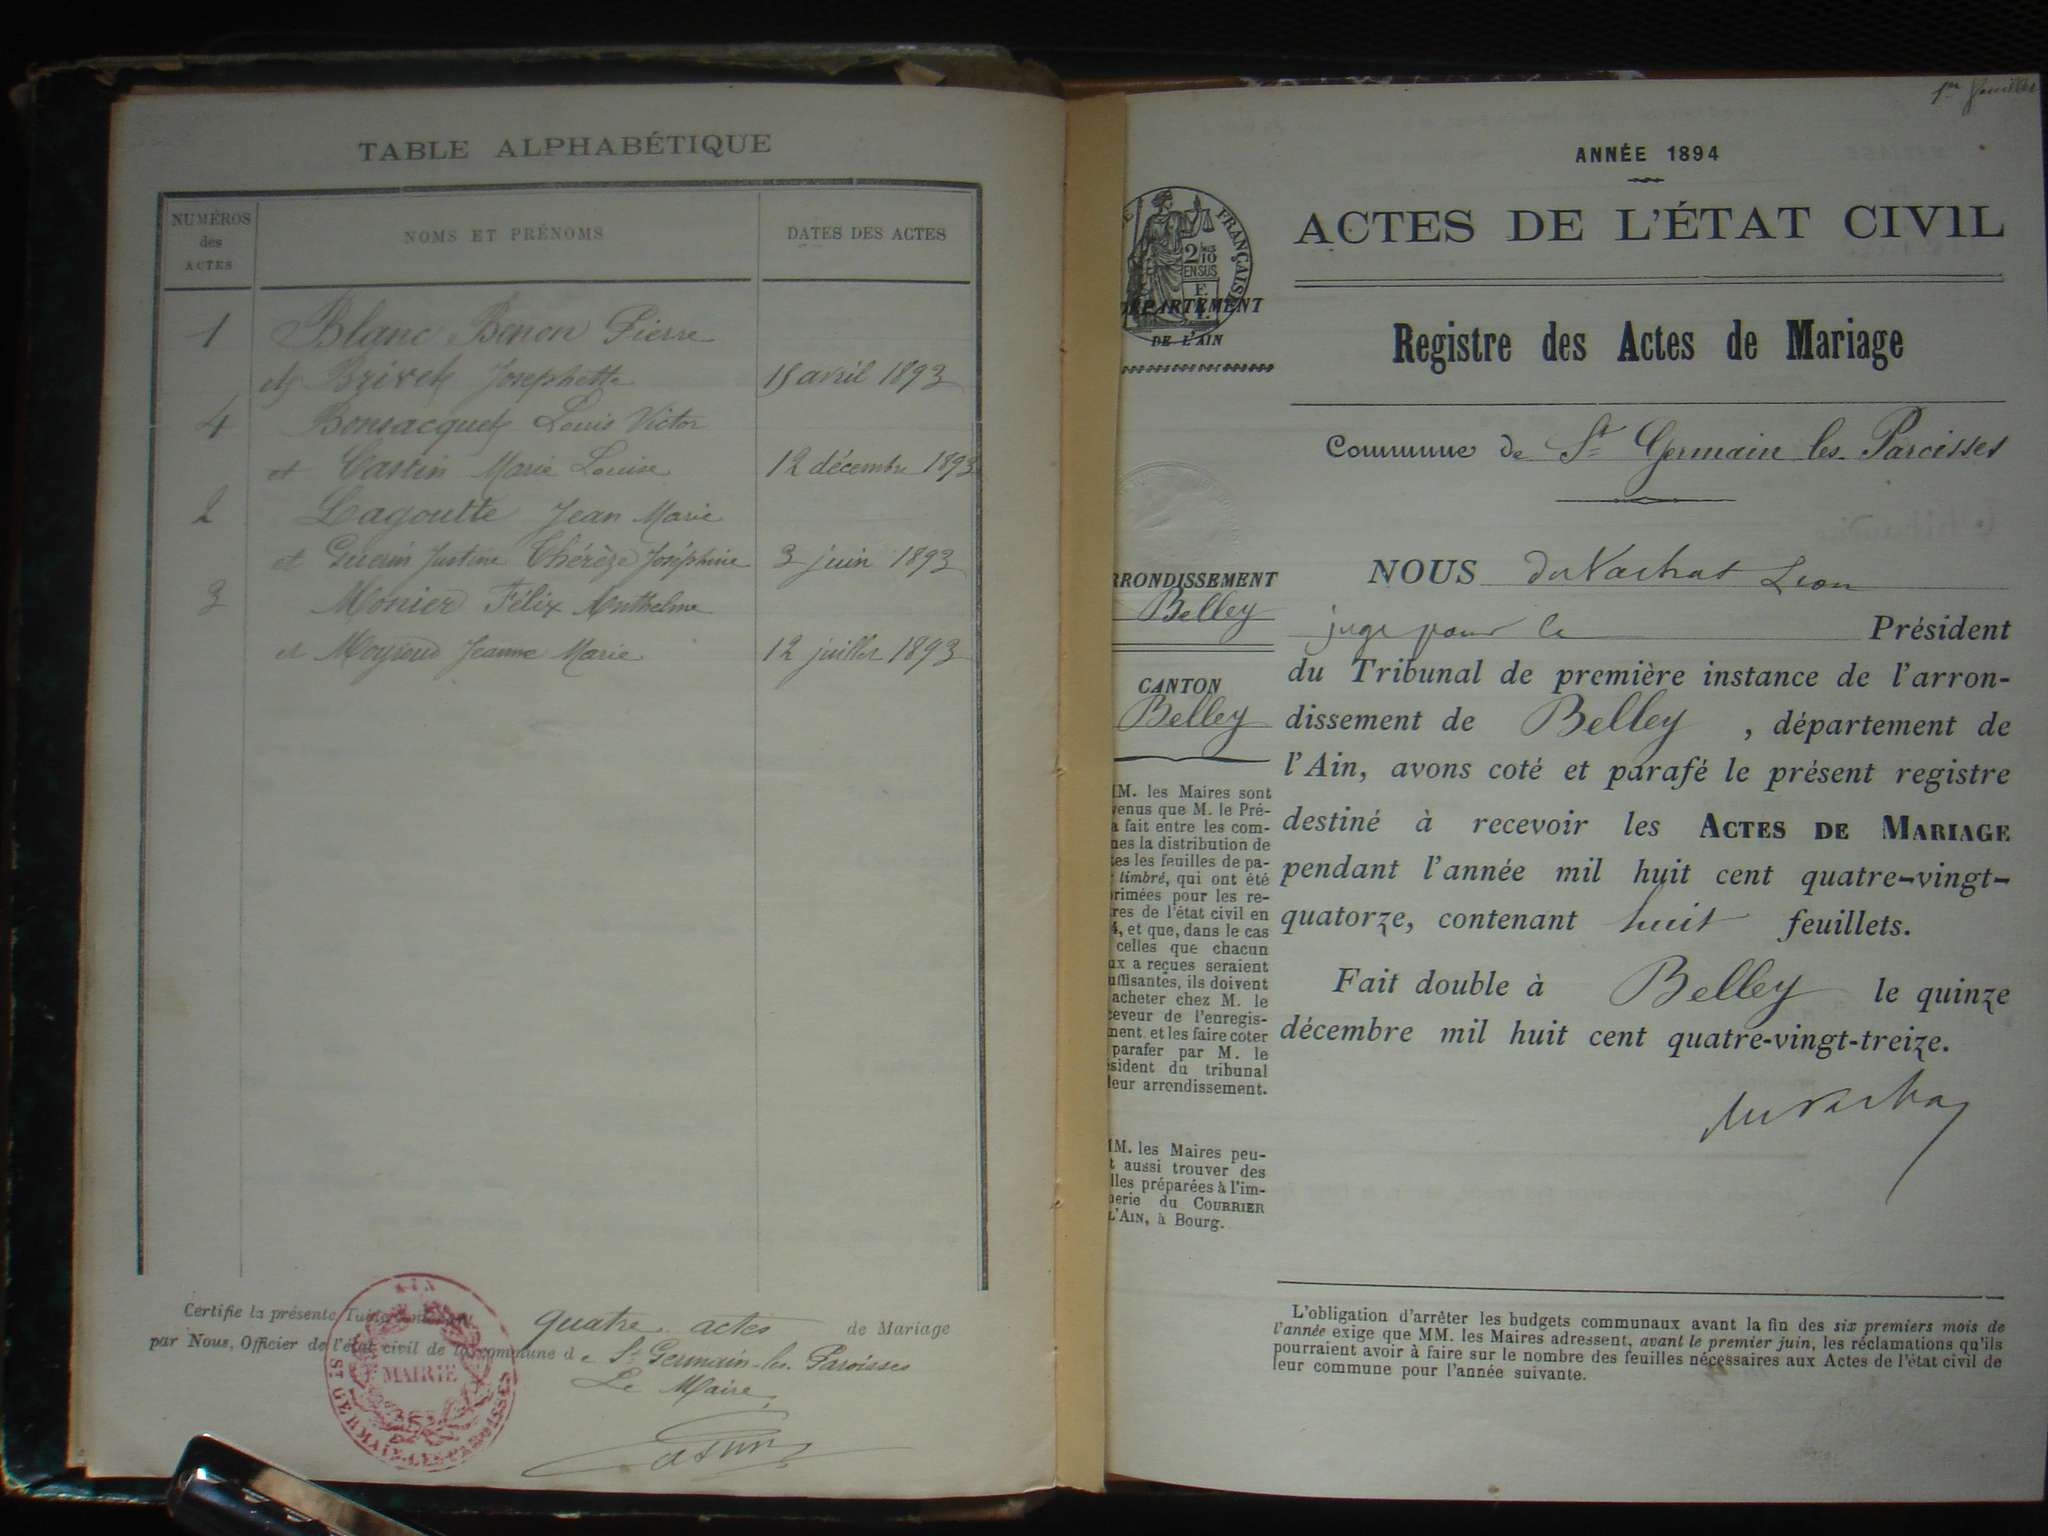 TABLE ALPHABÉTIQUE
NUMÉROS
des
ACTES
NOMS ET PRÉNOMS
DATES DES ACTES
1 Blanc Benon Pierre
et Brivet Josephette 15 avril 1893
4 Bonsacquet Louis Victor
et Castin Marie Louise 12 décembre 1893
2 Lagoutte Jean Marie
et Guerin Justine Thérèze Joséphine 3 juin 1893
3 Monier Félix Anthelme
et Moyroud Jeanne Marie 12 juillet 1893
Certifie la présente quatre actes de Mariage
par Nous, Officier de l'état civil de la commune de St Germain-les-Paroisses
Le Maire
Castin
AIN
MAIRIE
ST GERMAIN-LES-PAROISSES
1er feuillet
ANNÉE 1894
ACTES DE L'ÉTAT CIVIL
FRANÇAISE
2 10
EN SUS
DÉPARTEMENT
DE L'AIN
Registre des Actes de Mariage
Commune de St Germain les Paroisses
RRONDISSEMENT
Belley
CANTON
Belley
MM. les Maires sont
venus que M. le Pré-
a fait entre les com-
nes la distribution de
tes les feuilles de pa-
r timbré, qui ont été
rimées pour les re-
res de l'état civil en
4, et que, dans le cas
celles que chacun
ux a reçues seraient
uffisantes, ils doivent
acheter chez M. le
ceveur de l'enregis-
ment et les faire coter
parafer par M. le
sident du tribunal
leur arrondissement.
MM. les Maires peu-
t aussi trouver des
lles préparées à l'im-
erie du COURRIER
L'AIN, à Bourg.
NOUS du Vachat Léon
juge pour le Président
du Tribunal de première instance de l'arron-
dissement de Belley, département de
l'Ain, avons coté et parafé le présent registre
destiné à recevoir les ACTES DE MARIAGE
pendant l'année mil huit cent quatre-vingt-
quatorze, contenant huit feuillets.
Fait double à Belley le quinze
décembre mil huit cent quatre-vingt-treize.
du Vachat
L'obligation d'arrêter les budgets communaux avant la fin des six premiers mois de
l'année exige que MM. les Maires adressent, avant le premier juin, les réclamations qu'ils
pourraient avoir à faire sur le nombre des feuilles nécessaires aux Actes de l'état civil de
leur commune pour l'année suivante.